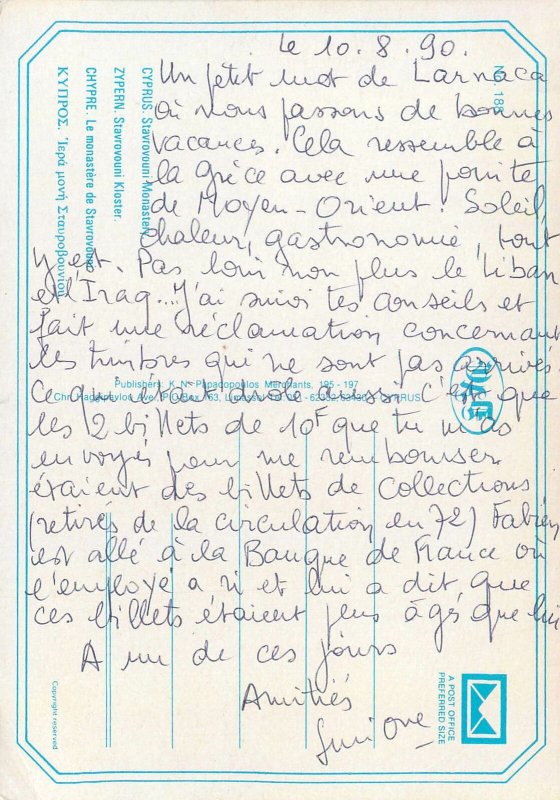 Le 10.8.90.
Un petit mot de Larnaca
où nous passons de bonnes
vacances. Cela ressemble à
la Grèce avec une pointe
de Moyen-Orient. Soleil,
chaleur, gastronomie, tout
y est. Pas loin non plus le Liban
et l'Iraq... J'ai suivi tes conseils et
fait une réclamation concernant
les timbres qui ne sont pas arrivés.
Ce qui était drôle aussi c'est que
les 2 billets de 10F que tu m'as
envoyés pour me rembourser
étaient des billets de collections
(retirés de la circulation en 72) Fabien
est allé à la Banque de France où
l'employé a ri et lui a dit que
ces billets étaient plus âgés que lui
A un de ces jours
Amitiés
No. 188
CYPRUS. Stavrovouni Monastery
ZYPERN. Stavrovouni Kloster
CHYPRE. Le monastère de Stavrovouni
ΚΥΠΡΟΣ. Ἱερά μονή Σταυροβουνίου
Publishers: K. N. Papadopoulos Merchants, 195 - 197
A POST OFFICE
PREFERRED SIZE
Copyright reserved